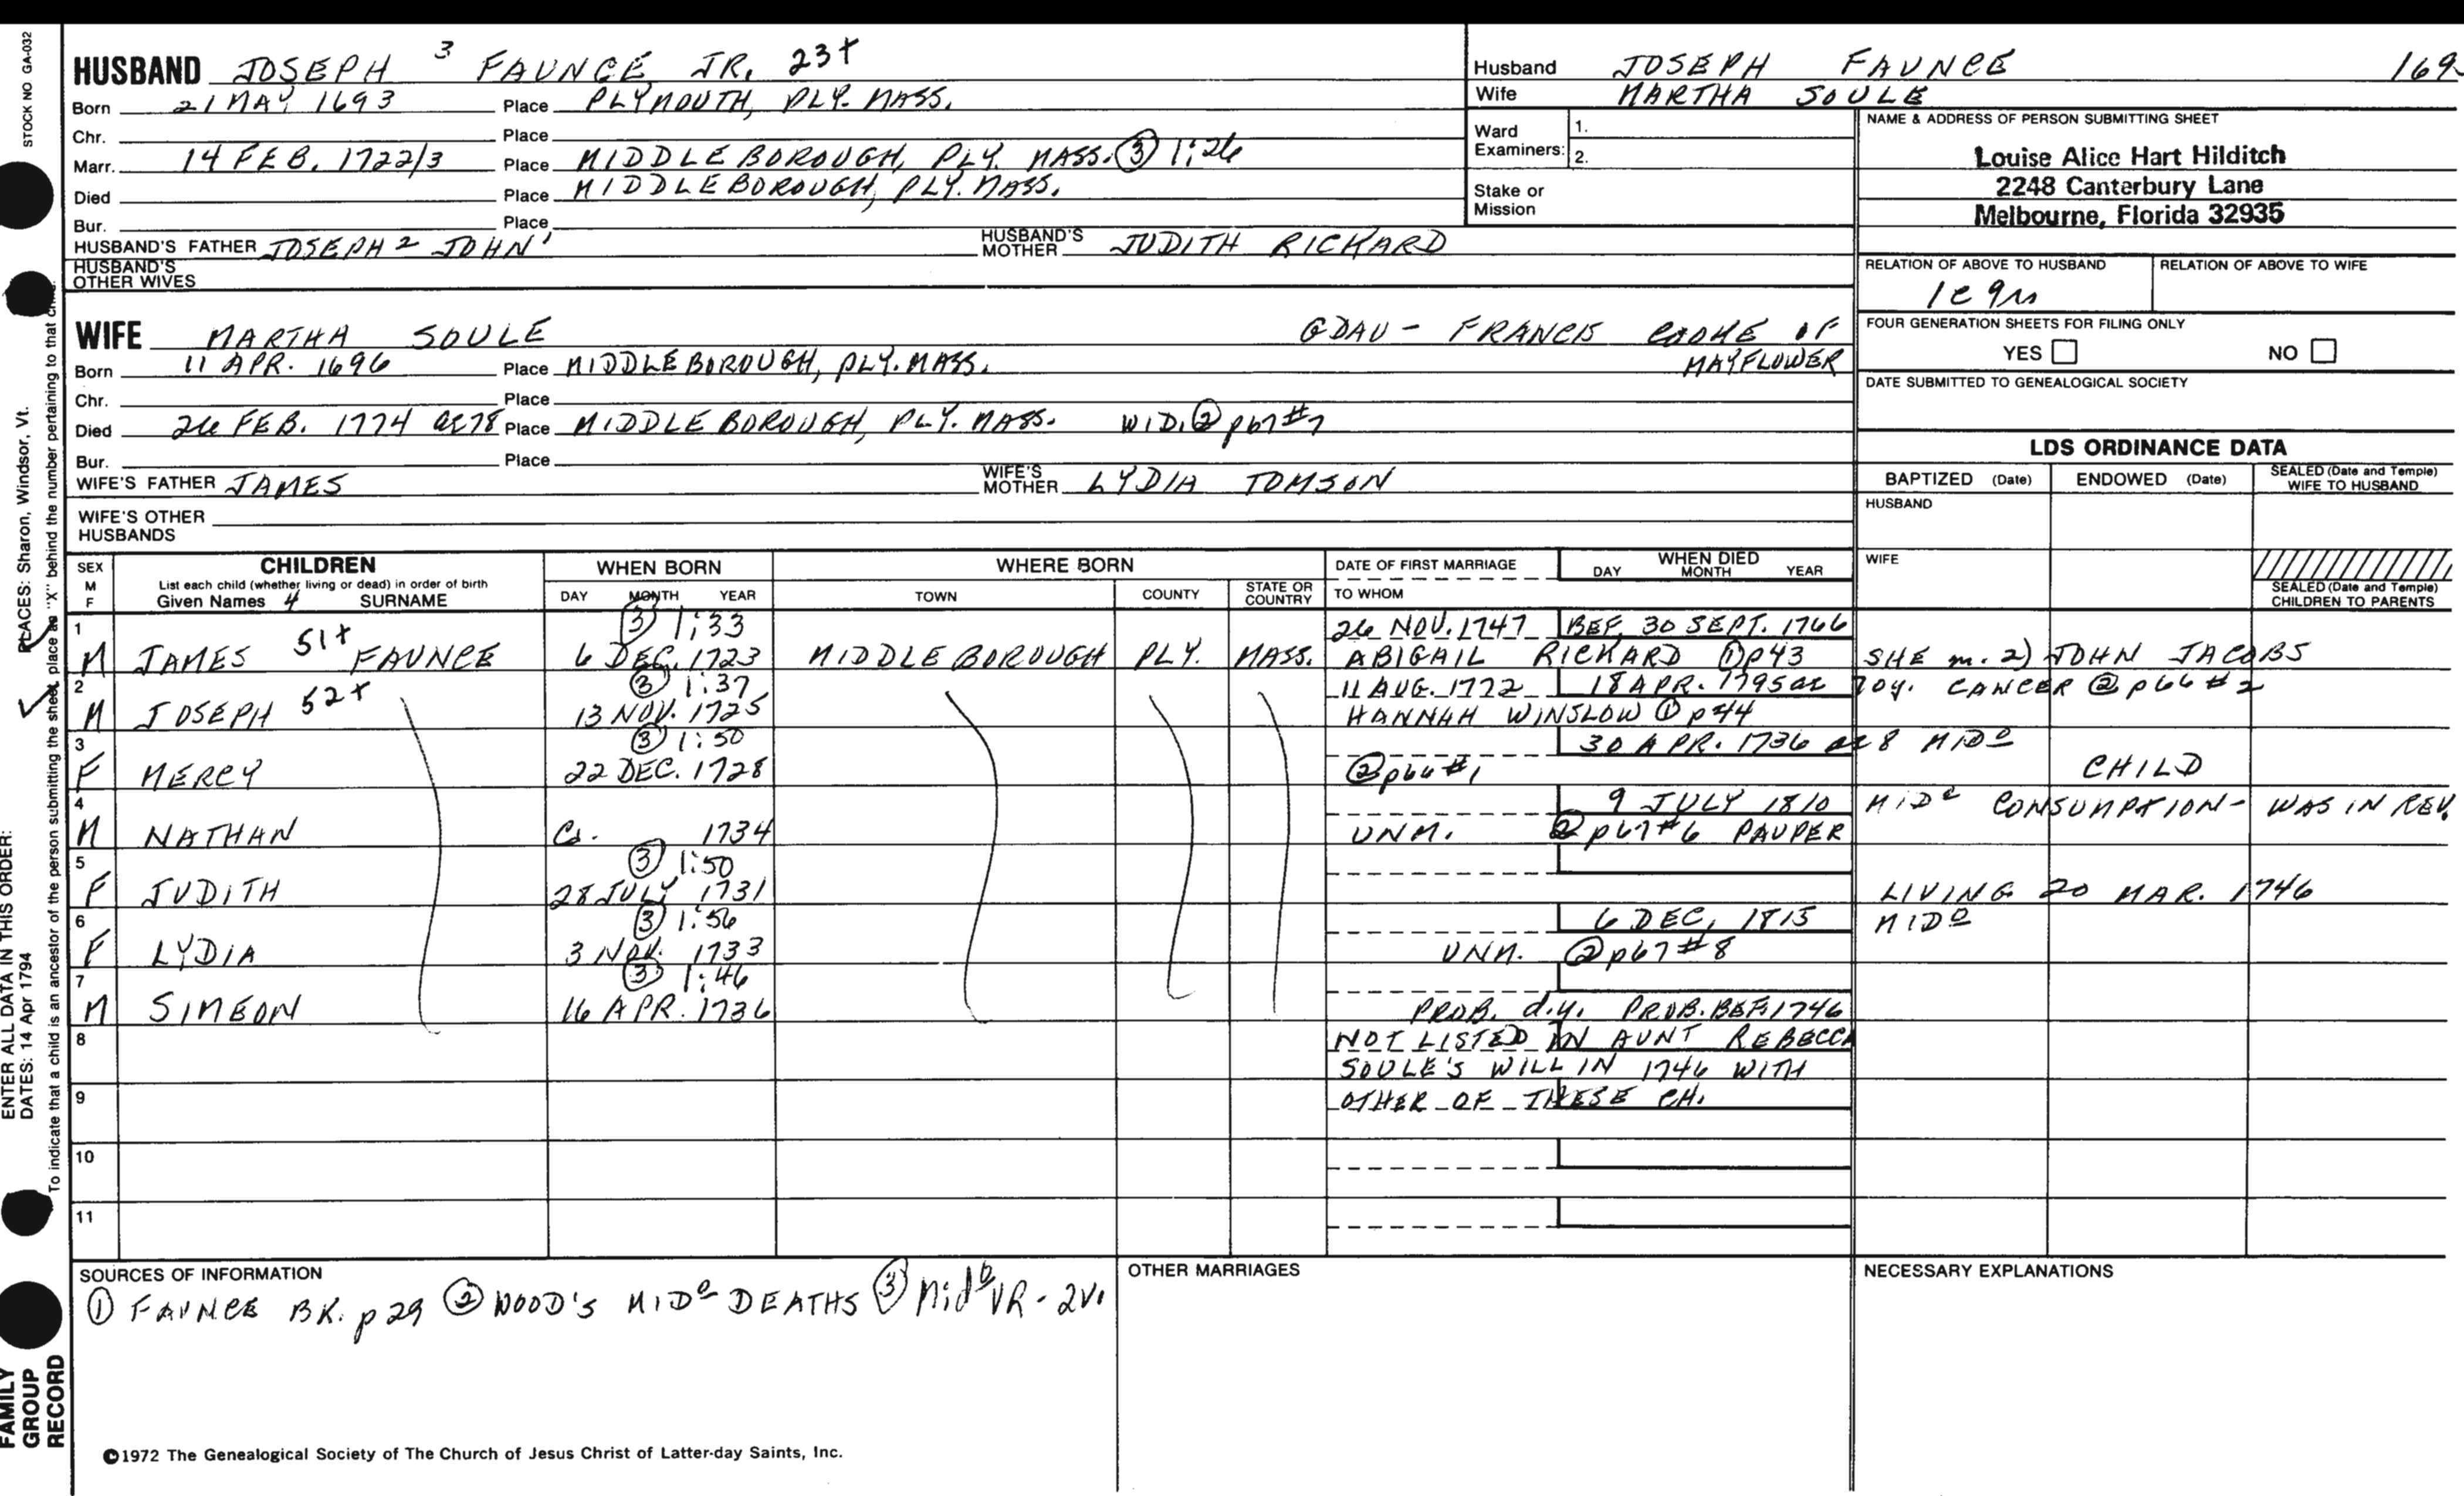 HUSBAND JOSEPH 3 FAUNCE JR. 23+
Born 21 MAY 1693 Place PLYMOUTH, PLY. MASS.
Chr. Place
Marr. 14 FEB. 1722/3 Place MIDDLEBOROUGH, PLY. MASS. ③ 1:26
Died Place MIDDLEBOROUGH, PLY. MASS.
Bur. Place
HUSBAND'S FATHER JOSEPH 2 JOHN 1 HUSBAND'S MOTHER JUDITH RICKARD
HUSBAND'S OTHER WIVES
WIFE MARTHA SOULE GDAU - FRANCIS COOKE OF MAYFLOWER
Born 11 APR. 1696 Place MIDDLEBOROUGH, PLY. MASS.
Chr. Place
Died 26 FEB. 1774 ae78 Place MIDDLEBOROUGH, PLY. MASS. WID. ② p67 #7
Bur. Place
WIFE'S FATHER JAMES WIFE'S MOTHER LYDIA TOMSON
WIFE'S OTHER HUSBANDS
Husband JOSEPH FAUNCE 169
Wife MARTHA SOULE
Ward Examiners: 1.
2.
Stake or Mission
NAME & ADDRESS OF PERSON SUBMITTING SHEET
Louise Alice Hart Hilditch
2248 Canterbury Lane
Melbourne, Florida 32935
RELATION OF ABOVE TO HUSBAND RELATION OF ABOVE TO WIFE
FOUR GENERATION SHEETS FOR FILING ONLY
YES NO
DATE SUBMITTED TO GENEALOGICAL SOCIETY
LDS ORDINANCE DATA
BAPTIZED (Date) ENDOWED (Date) SEALED (Date and Temple) WIFE TO HUSBAND
HUSBAND
WIFE
SEALED (Date and Temple) CHILDREN TO PARENTS
SEX M F CHILDREN WHEN BORN WHERE BORN DATE OF FIRST MARRIAGE WHEN DIED
List each child (whether living or dead) in order of birth
Given Names 4 SURNAME DAY MONTH YEAR TOWN COUNTY STATE OR COUNTRY TO WHOM DAY MONTH YEAR
1 ③ 1:33 26 NOV. 1747 BEF. 30 SEPT. 1766
M JAMES 51+ FAUNCE 6 DEC. 1723 MIDDLEBOROUGH PLY. MASS. ABIGAIL RICKARD ① p43 SHE m. 2) JOHN JACOBS
2 ③ 1:37 11 AUG. 1772 18 APR. 1795 ae 70y. CANCER ② p66 #2
M JOSEPH 52+ 13 NOV. 1725 HANNAH WINSLOW ① p44
3 ③ 1:50 30 APR. 1736 ae 8 MIDº
F MERCY 22 DEC. 1728 ② p66 #1 CHILD
4 9 JULY 1810 MIDº CONSUMPTION - WAS IN REV.
M NATHAN Ca. 1734 UNM. ② p67 #6 PAUPER
5 ③ 1:50
F JUDITH 28 JULY 1731 LIVING 20 MAR. 1746
6 ③ 1:56 6 DEC. 1815 MIDº
F LYDIA 3 NOV. 1733 UNM. ② p67 #8
7 ③ 1:46
M SIMEON 16 APR. 1736 PROB. d.y. PROB. BEF. 1746
8 NOT LISTED IN AUNT REBECCA
SOULE'S WILL IN 1746 WITH
9 OTHER OF THESE CH.
10
11
SOURCES OF INFORMATION
① FAUNCE BK. p 29 ② WOOD'S MIDº DEATHS ③ Midº VR - 2v.
OTHER MARRIAGES
NECESSARY EXPLANATIONS
©1972 The Genealogical Society of The Church of Jesus Christ of Latter-day Saints, Inc.
STOCK NO GA-032
ENTER ALL DATA IN THIS ORDER: PLACES: Sharon, Windsor, Vt.
DATES: 14 Apr 1794
To indicate that a child is an ancestor of the person submitting the sheet, place an "X" behind the number pertaining to that
FAMILY
GROUP
RECORD